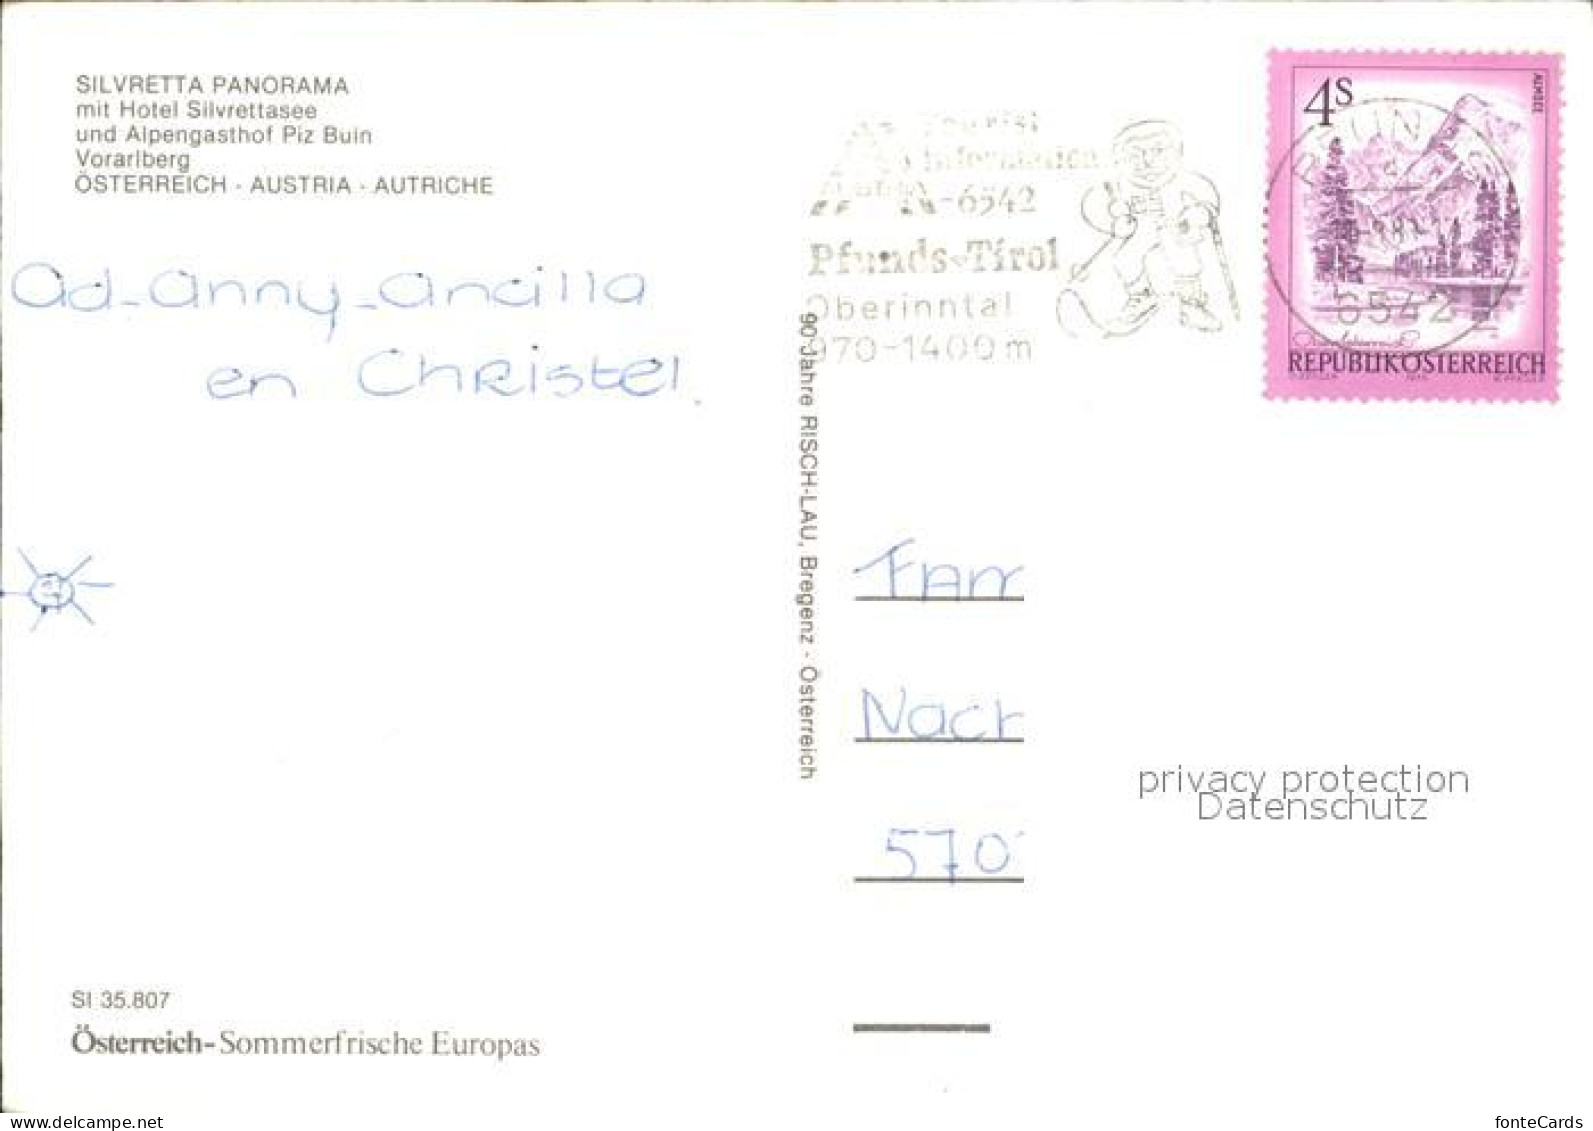 SILVRETTA PANORAMA
mit Hotel Silvrettasee
und Alpengasthof Piz Buin
Vorarlberg
ÖSTERREICH · AUSTRIA · AUTRICHE
Ad-Anny-Ancilla
en Christel.
90 Jahre RISCH-LAU, Bregenz · Österreich
Tourist
Information
A-6542
Pfunds-Tirol
Oberinntal
970-1400m
4S
ALMSEE
PFUNDS
6542
REPUBLIK ÖSTERREICH
Fam
Nach
570
privacy protection
Datenschutz
SI 35.807
Österreich-Sommerfrische Europas
www.delcampe.net
fonteCards